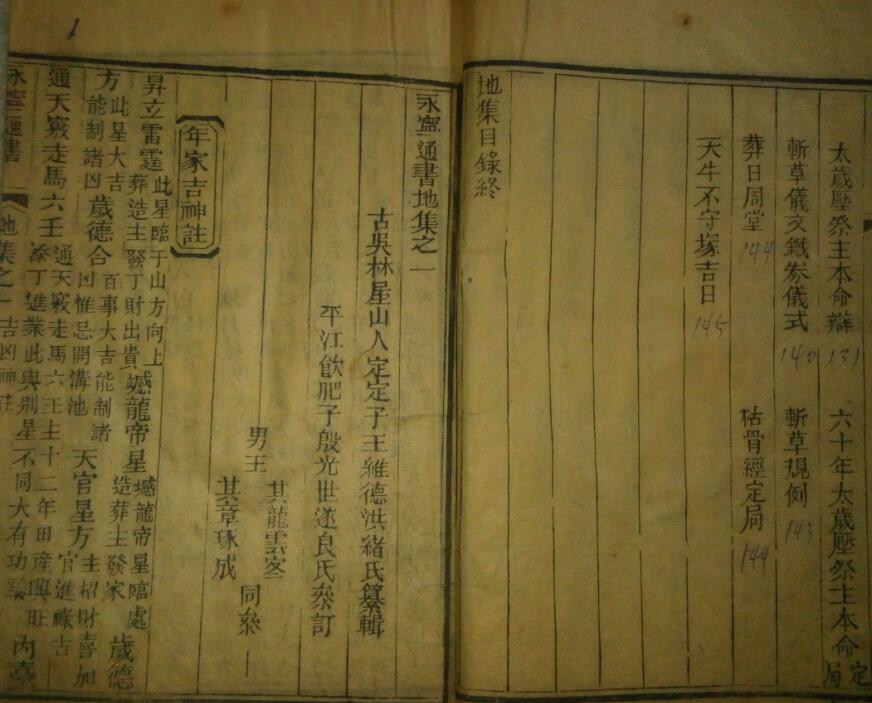 太歲壓祭主本命辯 131 六十年太歲壓祭主本命定局
斬草儀文鐵券儀式 140 斬草規例 143
葬日周堂 144 枯骨經定局 144
天牛不守塚吉日 145
地集目錄終
永寧通書地集之一
古吳林屋山人定定子王維德洪緒氏纂輯
平江飲肥子殷光世遂良氏叅訂
男王
其龍雲客
其章琢成
同叅
年家吉神註
昇立雷霆 此星臨于山方向上葬造主發丁財出貴 撼龍帝星 撼龍帝星臨處造葬主發家 歲德
方 此星大吉能制諸凶 歲德合 百事大吉能制諸凶惟忌開溝池 天官星方 主招財喜加官進祿吉
通天竅走馬六壬 通天竅走馬六壬主十二年田產興旺添丁進業此與別星不同大有功驗 內臺
永寧通書 地集之一 吉凶神註
1